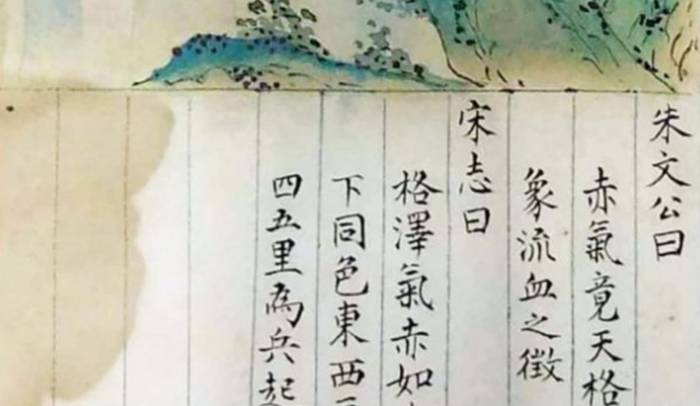 朱文公曰
赤氣竟天格
象流血之徵
宋志曰
格澤氣赤如
下同色東西
四五里為兵起